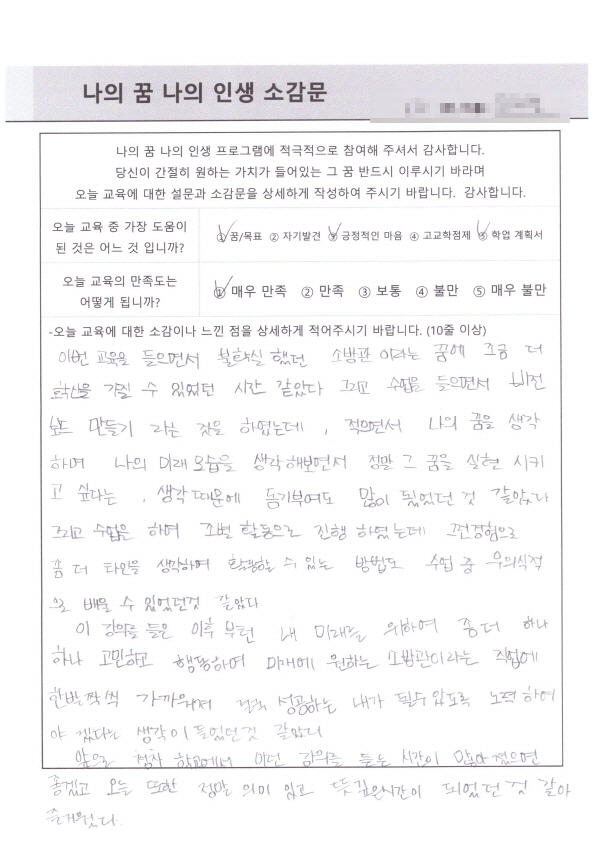 나의 꿈 나의 인생 소감문
나의 꿈 나의 인생 프로그램에 적극적으로 참여해 주셔서 감사합니다.
당신이 간절히 원하는 가치가 들어있는 그 꿈 반드시 이루시기 바라며
오늘 교육에 대한 설문과 소감문을 상세하게 작성하여 주시기 바랍니다. 감사합니다.
오늘 교육 중 가장 도움이
된 것은 어느 것 입니까?
① 꿈/목표 ② 자기발견 ③ 긍정적인 마음 ④ 고교학점제 ⑤ 학업 계획서
오늘 교육의 만족도는
어떻게 됩니까?
① 매우 만족 ② 만족 ③ 보통 ④ 불만 ⑤ 매우 불만
-오늘 교육에 대한 소감이나 느낀 점을 상세하게 적어주시기 바랍니다. (10줄 이상)
이번 교육을 들으면서 불확실 했던 소방관 이라는 꿈에 조금 더
확신을 가질 수 있었던 시간 같았다 그리고 수업을 들으면서 비전
보드 만들기 라는 것을 하였는데, 적으면서 나의 꿈을 생각
하며 나의 미래 모습을 생각해보면서 정말 그 꿈을 실현 시키
고 싶다는, 생각 때문에 동기부여도 많이 됬었던 것 같았다
그리고 수업은 하며 조별 활동으로 진행 하였는데
좀 더 타인을 생각하며 활동할 수 있는 방법도 수업 중 무의식적
으로 배울 수 있었던것 같았다
이 강의를 들은 이후 부턴 내 미래를 위하여 좀더 하나
하나 고민하고 행동하여 미래에 원하는 소방관이라는 직업에
한발짝 씩 가까워져 점점 성공하는 내가 될수있도록 노력하여
야 겠다는 생각이 들었던것 같았다
앞으로 점차 학교에서 이런 강의를 듣는 시간이 많아졌으면
좋겠고 오늘 또한 정말 의미 있고 뜻깊은시간이 되었던 것 같아
즐거웠다.